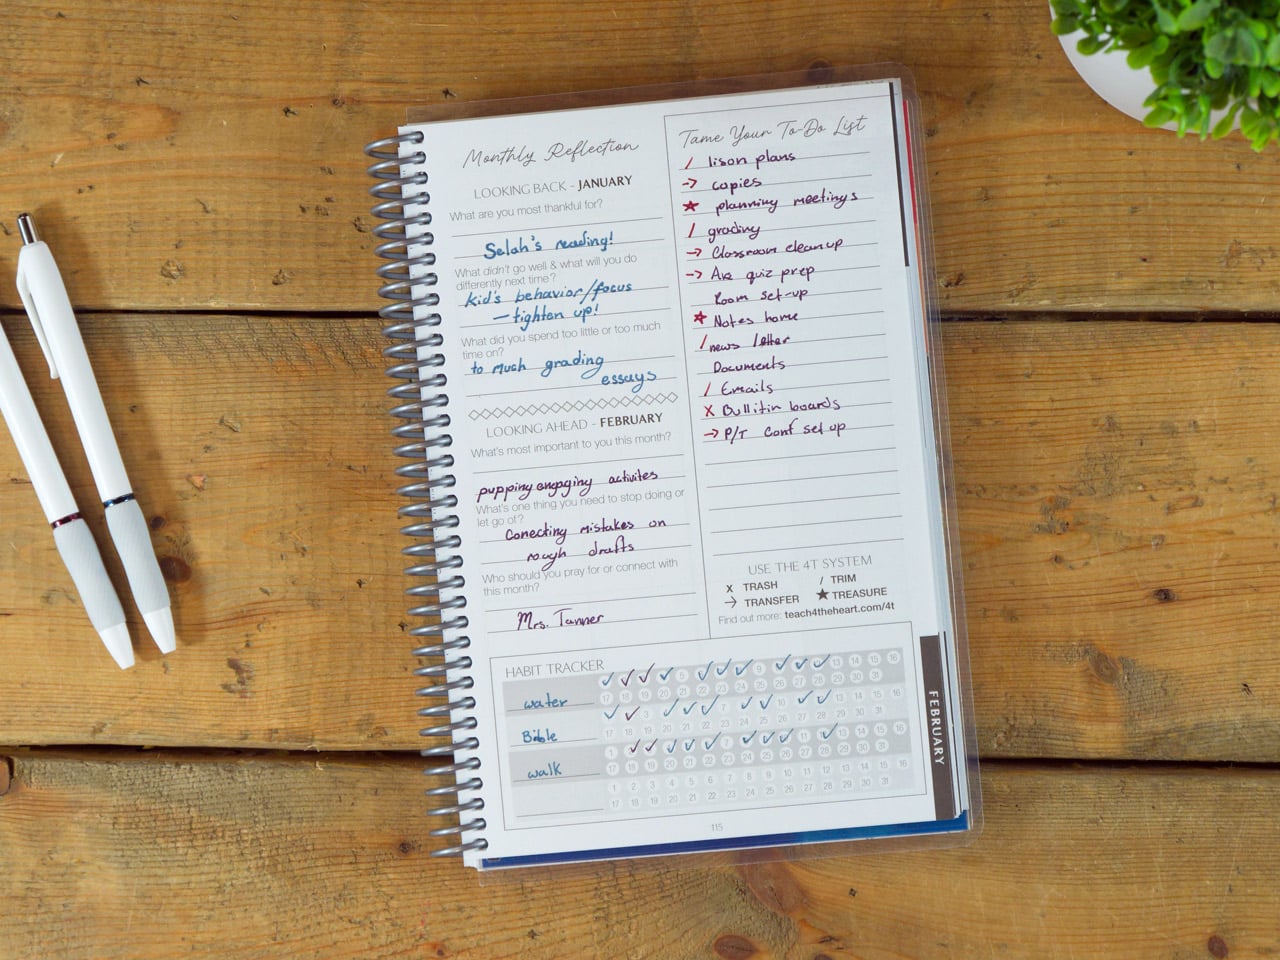 Monthly Reflection
LOOKING BACK - JANUARY
What are you most thankful for?
Selah's reading!
What didn't go well & what will you do
differently next time?
kid's behavior/focus
— tighten up!
What did you spend too little or too much
time on?
to much grading
essays
LOOKING AHEAD - FEBRUARY
What's most important to you this month?
pupping engaging activites
What's one thing you need to stop doing or
let go of?
Conecting mistakes on
rough drafts
Who should you pray for or connect with
this month?
Mrs. Tanner
Tame Your To-Do List
/ lison plans
→ copies
★ planning meetings
/ grading
→ Classroom cleanup
→ Ark quiz prep
Room set-up
★ Notes home
/ news letter
Documents
/ Emails
X Bullitin boards
→ P/T Conf set up
USE THE 4T SYSTEM
X TRASH / TRIM
→ TRANSFER ★ TREASURE
Find out more: teach4theheart.com/4t
HABIT TRACKER
✓ ✓ ✓ ✓ 5 ✓ ✓ ✓ 9 ✓ ✓ ✓ 13 14 15 16
water 17 18 19 20 21 22 23 24 25 26 27 28 29 30 31
✓ ✓ 3 ✓ ✓ ✓ 7 ✓ ✓ 10 ✓ ✓ 13 14 15 16
Bible 17 18 19 20 21 22 23 24 25 26 27 28 29 30 31
1 ✓ ✓ ✓ ✓ ✓ 7 ✓ ✓ ✓ 11 ✓ 13 14 15 16
walk 17 18 19 20 21 22 23 24 25 26 27 28 29 30 31
1 2 3 4 5 6 7 8 9 10 11 12 13 14 15 16
17 18 19 20 21 22 23 24 25 26 27 28 29 30 31
115
FEBRUARY